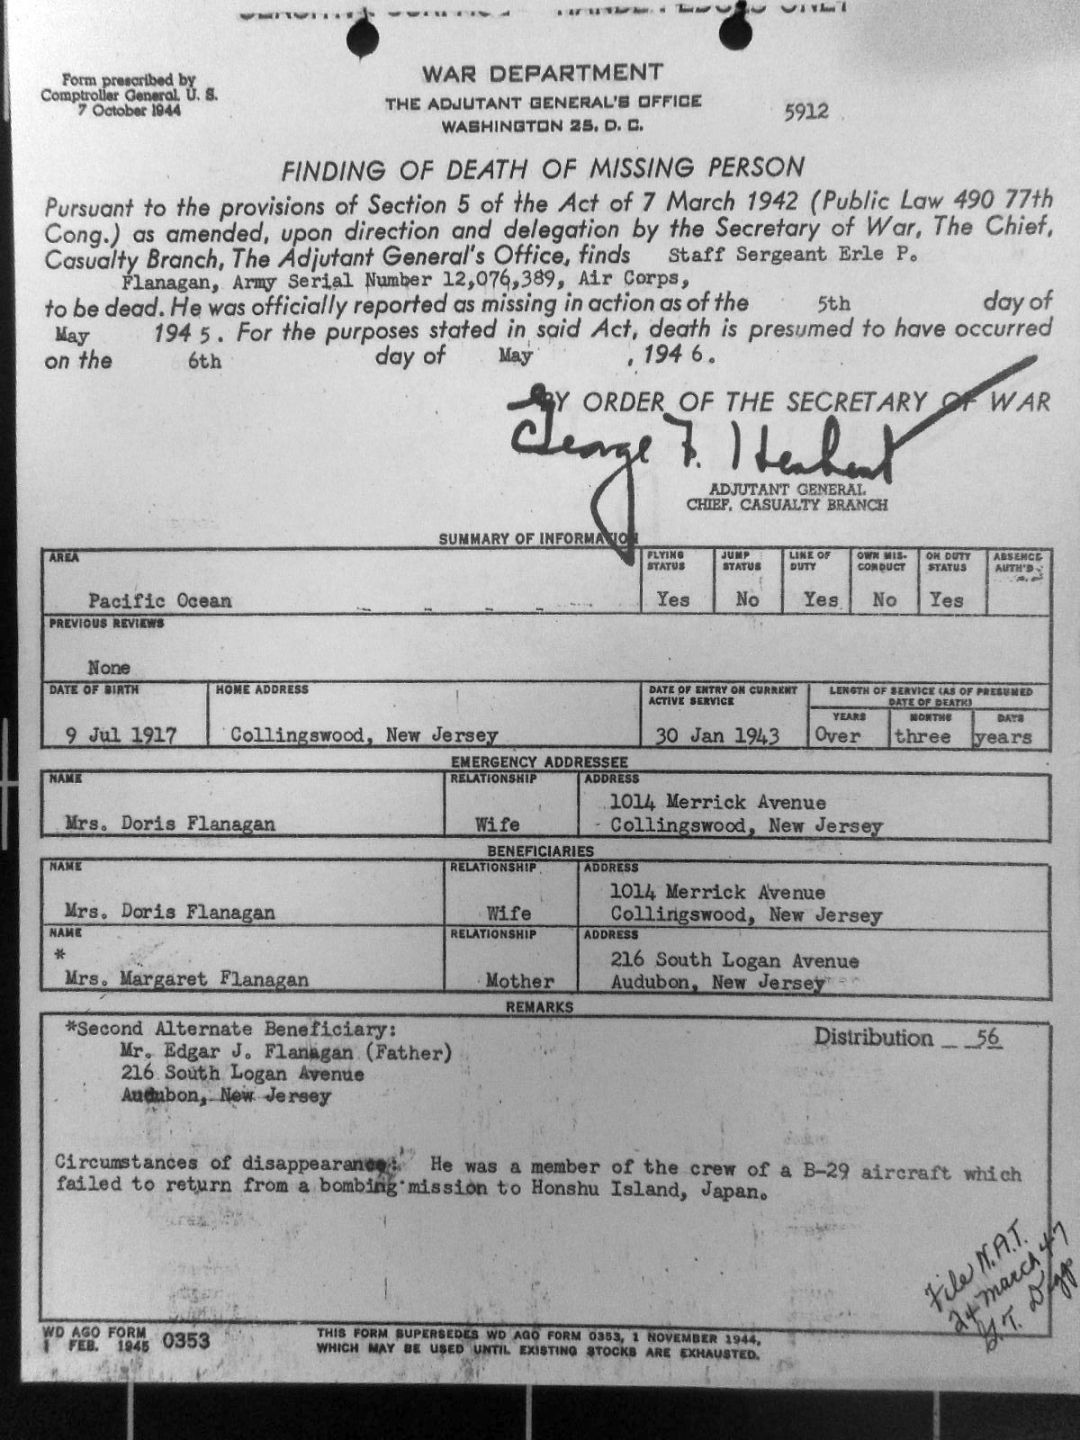 Form prescribed by
Comptroller General, U. S.
7 October 1944
WAR DEPARTMENT
THE ADJUTANT GENERAL'S OFFICE
WASHINGTON 25, D. C.
5912
FINDING OF DEATH OF MISSING PERSON
Pursuant to the provisions of Section 5 of the Act of 7 March 1942 (Public Law 490 77th
Cong.) as amended, upon direction and delegation by the Secretary of War, The Chief,
Casualty Branch, The Adjutant General's Office, finds Staff Sergeant Erle P.
Flanagan, Army Serial Number 12,076,389, Air Corps,
to be dead. He was officially reported as missing in action as of the 5th day of
May 194 5. For the purposes stated in said Act, death is presumed to have occurred
on the 6th day of May , 194 6.
BY ORDER OF THE SECRETARY OF WAR
George F. Herbert
ADJUTANT GENERAL
CHIEF, CASUALTY BRANCH
SUMMARY OF INFORMATION
AREA FLYING STATUS JUMP STATUS LINE OF DUTY OWN MIS-CONDUCT ON DUTY STATUS ABSENCE AUTH'D
Pacific Ocean Yes No Yes No Yes
PREVIOUS REVIEWS
None
DATE OF BIRTH HOME ADDRESS DATE OF ENTRY ON CURRENT ACTIVE SERVICE LENGTH OF SERVICE (AS OF PRESUMED DATE OF DEATH)
YEARS MONTHS DAYS
9 Jul 1917 Collingswood, New Jersey 30 Jan 1943 Over three years
EMERGENCY ADDRESSEE
NAME RELATIONSHIP ADDRESS
1014 Merrick Avenue
Mrs. Doris Flanagan Wife Collingswood, New Jersey
BENEFICIARIES
NAME RELATIONSHIP ADDRESS
1014 Merrick Avenue
Mrs. Doris Flanagan Wife Collingswood, New Jersey
NAME RELATIONSHIP ADDRESS
* 216 South Logan Avenue
Mrs. Margaret Flanagan Mother Audubon, New Jersey
REMARKS
*Second Alternate Beneficiary: Distribution _ _56
Mr. Edgar J. Flanagan (Father)
216 South Logan Avenue
Audubon, New Jersey
Circumstances of disappearance: He was a member of the crew of a B-29 aircraft which
failed to return from a bombing mission to Honshu Island, Japan.
File N.A.T.
24 March 47
WD AGO FORM 0353
1 FEB. 1945
THIS FORM SUPERSEDES WD AGO FORM 0353, 1 NOVEMBER 1944,
WHICH MAY BE USED UNTIL EXISTING STOCKS ARE EXHAUSTED.